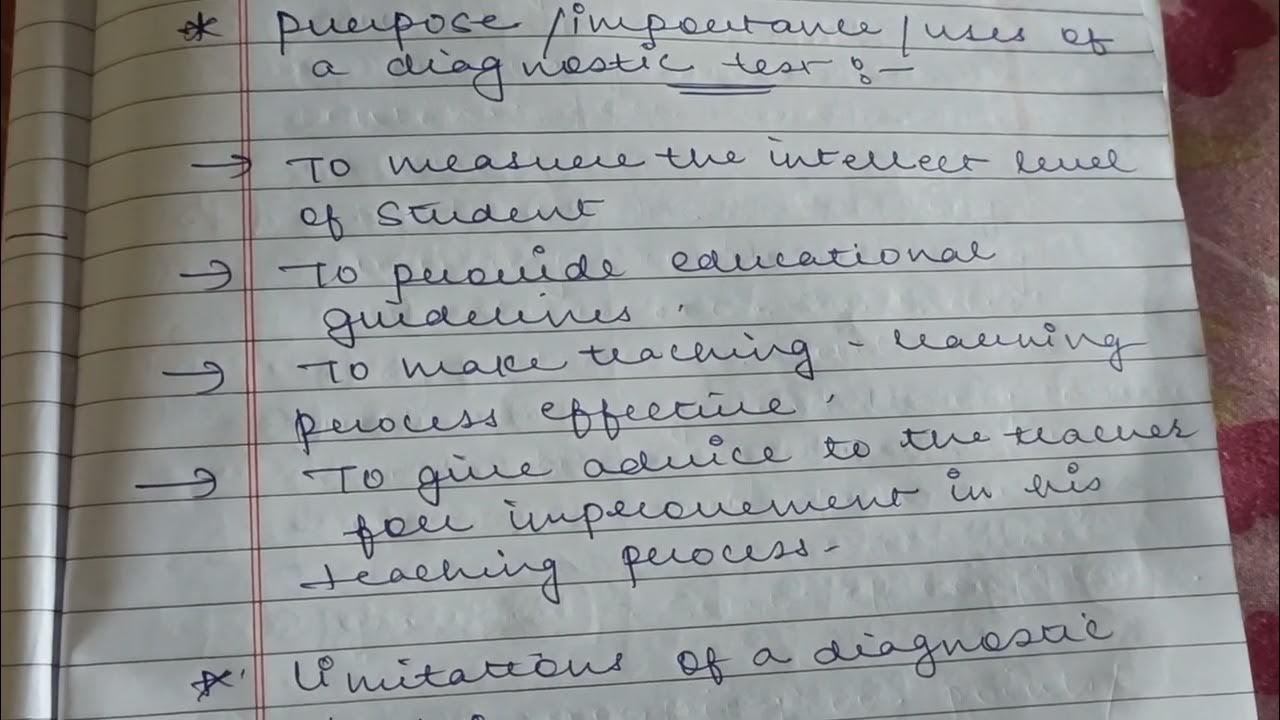 * purpose / importance / uses of
a diagnostic test :-
→ To measure the intellect level
of student
→ To provide educational
guidelines.
→ To make teaching - learning
process effective.
→ To give advice to the teacher
for improvement in his
teaching process.
* limitations of a diagnostic